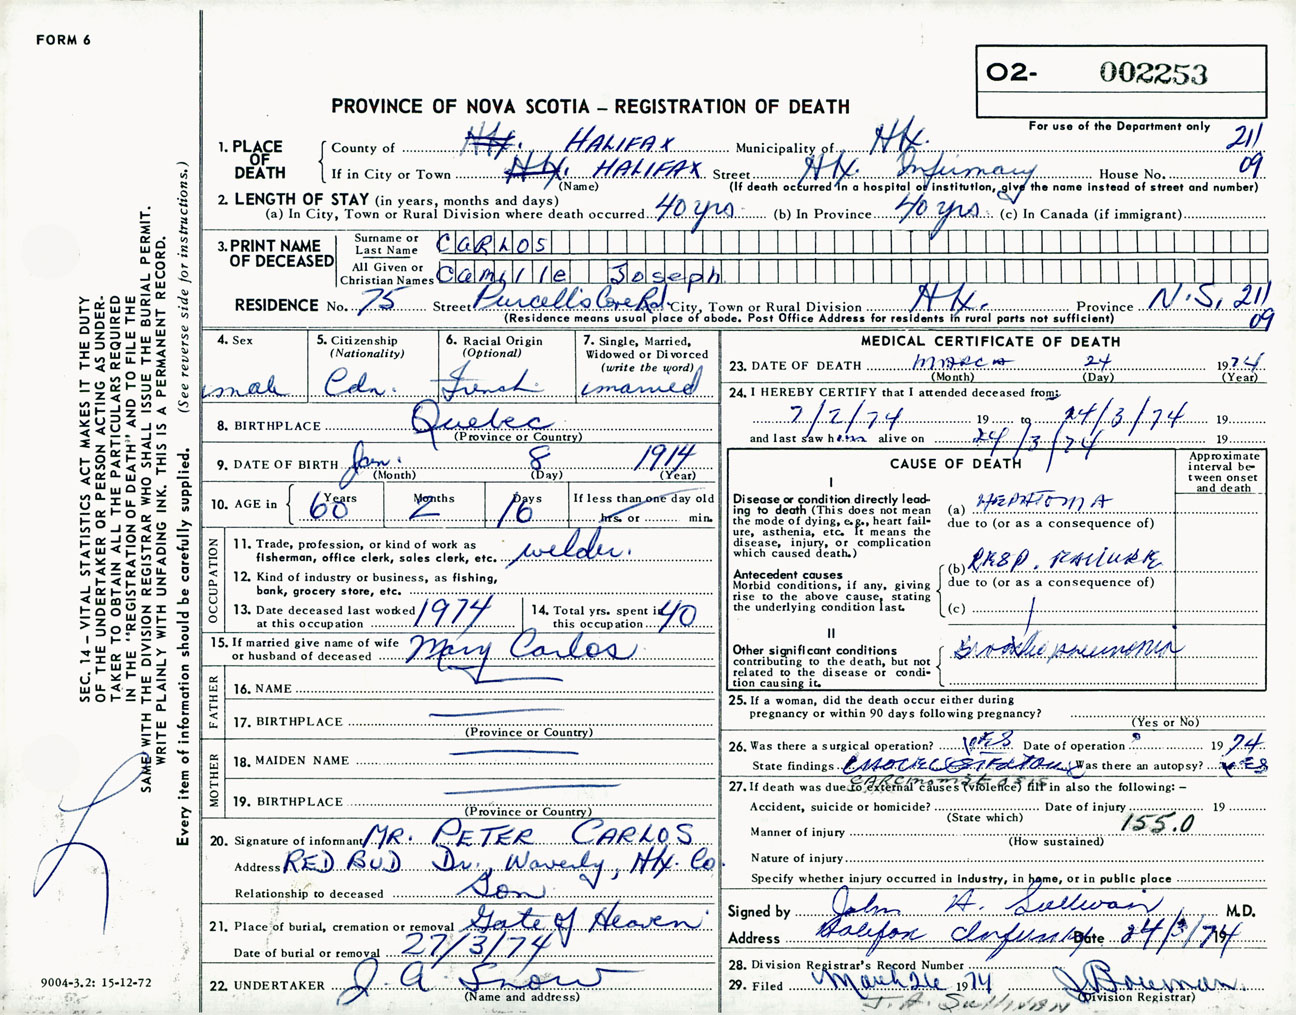 FORM 6
O2- 002253
PROVINCE OF NOVA SCOTIA – REGISTRATION OF DEATH
For use of the Department only
211
09
1. PLACE OF DEATH
County of HALIFAX Municipality of Hfx.
If in City or Town HALIFAX Street Hfx. Infirmary House No.
(Name) (If death occurred in a hospital or institution, give the name instead of street and number)
2. LENGTH OF STAY (in years, months and days)
(a) In City, Town or Rural Division where death occurred 40 yrs. (b) In Province 40 yrs. (c) In Canada (if immigrant)
3. PRINT NAME OF DECEASED
Surname or Last Name CARLOS
All Given or Christian Names Camille Joseph
RESIDENCE No. 75 Street Purcell's Cove Rd. City, Town or Rural Division Hfx. Province N.S. 211
09
(Residence means usual place of abode. Post Office Address for residents in rural parts not sufficient)
4. Sex
male
5. Citizenship
(Nationality)
Cdn.
6. Racial Origin
(Optional)
French
7. Single, Married,
Widowed or Divorced
(write the word)
married
8. BIRTHPLACE Quebec
(Province or Country)
9. DATE OF BIRTH Jan. 8 1914
(Month) (Day) (Year)
10. AGE in
Years 60
Months 2
Days 16
If less than one day old
hrs. or min.
OCCUPATION
11. Trade, profession, or kind of work as
fisherman, office clerk, sales clerk, etc. welder.
12. Kind of industry or business, as fishing,
bank, grocery store, etc.
13. Date deceased last worked
at this occupation 1974
14. Total yrs. spent in
this occupation 40
15. If married give name of wife
or husband of deceased Mary Carlos
FATHER
16. NAME
17. BIRTHPLACE
(Province or Country)
MOTHER
18. MAIDEN NAME
19. BIRTHPLACE
(Province or Country)
20. Signature of informant MR. PETER CARLOS
Address RED BUD Dr., Waverly, Hfx. Co.
Relationship to deceased Son
21. Place of burial, cremation or removal Gate of Heaven
Date of burial or removal 27/3/74
22. UNDERTAKER J. A. Snow
(Name and address)
MEDICAL CERTIFICATE OF DEATH
23. DATE OF DEATH MARCH 24 1974
(Month) (Day) (Year)
24. I HEREBY CERTIFY that I attended deceased from:
7/2/74 19 to 24/3/74
and last saw him alive on 24/3/74 19
CAUSE OF DEATH
Approximate
interval be-
tween onset
and death
I
Disease or condition directly lead-
ing to death (This does not mean
the mode of dying, e.g., heart fail-
ure, asthenia, etc. It means the
disease, injury, or complication
which caused death.)
(a) HEPATOMA
due to (or as a consequence of)
Antecedent causes
Morbid conditions, if any, giving
rise to the above cause, stating
the underlying condition last.
(b) RESP. FAILURE
due to (or as a consequence of)
(c)
II
Other significant conditions
contributing to the death, but not
related to the disease or condi-
tion causing it.
Bronchopneumonia
25. If a woman, did the death occur either during
pregnancy or within 90 days following pregnancy?
(Yes or No)
26. Was there a surgical operation? YES Date of operation ? 1974
State findings Was there an autopsy? YES
CARCINOMATOSIS
27. If death was due to external causes (violence) fill in also the following: –
Accident, suicide or homicide? Date of injury 19
(State which)
155.0
Manner of injury
(How sustained)
Nature of injury
Specify whether injury occurred in industry, in home, or in public place
Signed by John A. Sullivan M.D.
Address Halifax Infirmary Date 24/3/74 19
28. Division Registrar's Record Number
29. Filed March 26 1974 J Bowman.
(Division Registrar)
J. A. SULLIVAN
SEC. 14 – VITAL STATISTICS ACT MAKES IT THE DUTY
OF THE UNDERTAKER OR PERSON ACTING AS UNDER-
TAKER TO OBTAIN ALL THE PARTICULARS REQUIRED
IN THE "REGISTRATION OF DEATH" AND TO FILE THE
SAME WITH THE DIVISION REGISTRAR WHO SHALL ISSUE THE BURIAL PERMIT.
WRITE PLAINLY WITH UNFADING INK. THIS IS A PERMANENT RECORD.
Every item of information should be carefully supplied. (See reverse side for instructions.)
9004-3.2: 15-12-72